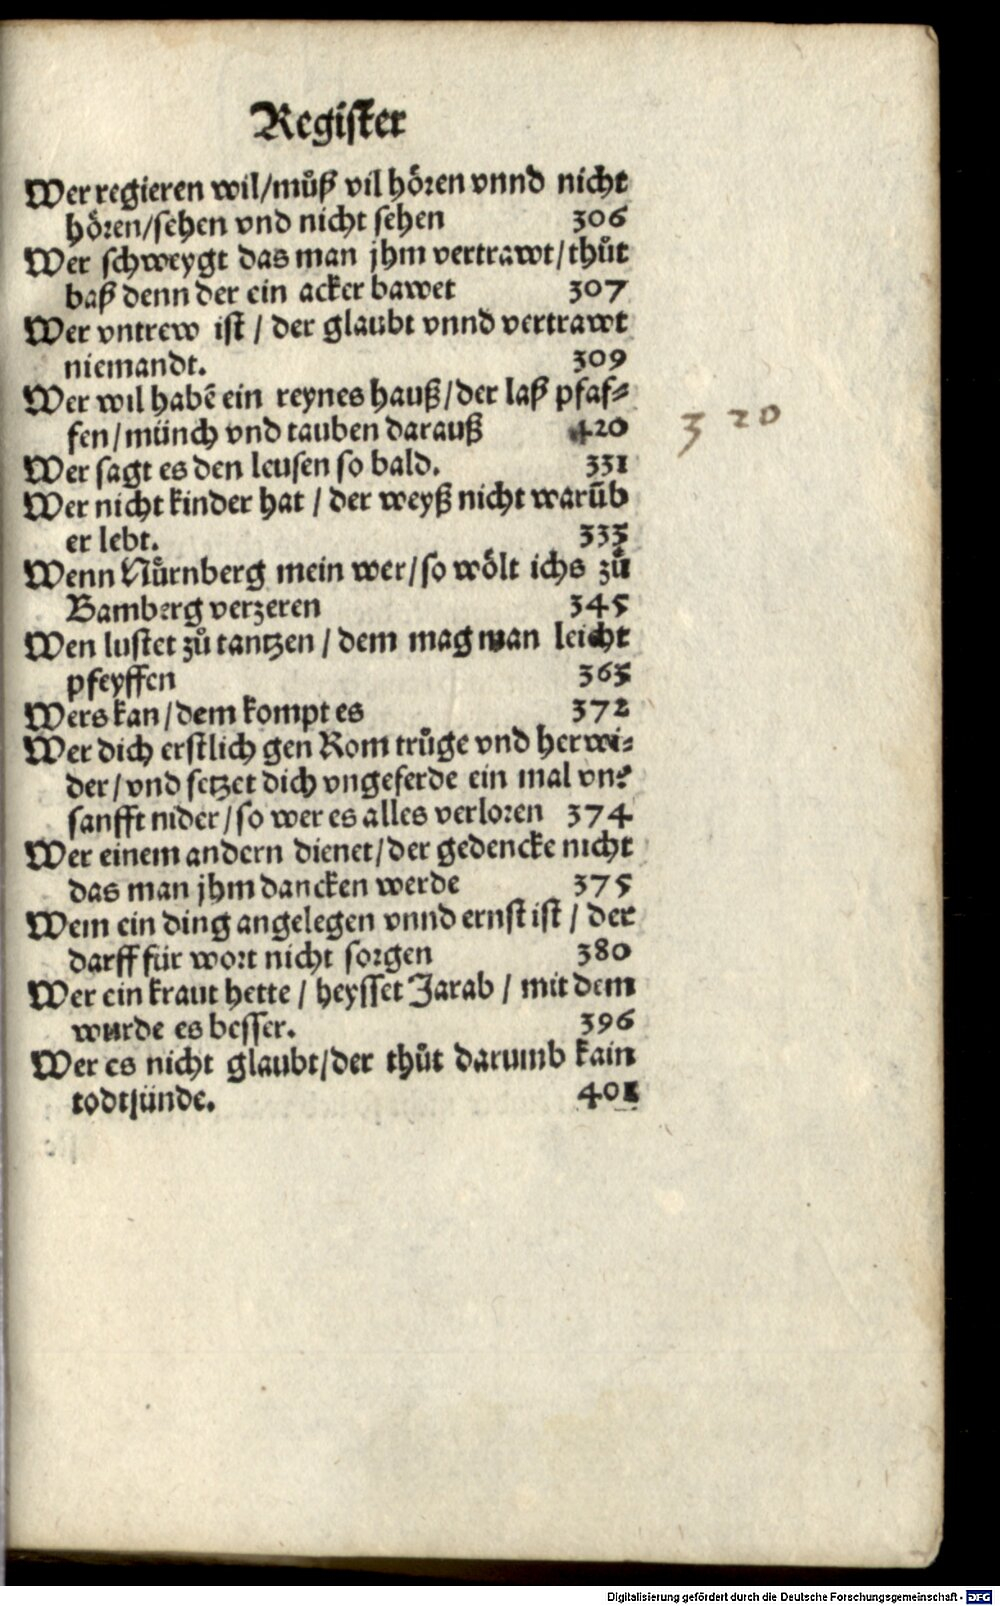 Register
Wer regieren wil/můß vil hören vnnd nicht
hören/sehen vnd nicht sehen 306
Wer schweygt das man jhm vertrawt/thůt
baß denn der ein acker bawet 307
Wer vntrew ist / der glaubt vnnd vertrawt
niemandt. 309
Wer wil habē ein reynes hauß/der laß pfaf⸗
fen/münch vnd tauben darauß 420 320
Wer sagt es den leusen so bald. 331
Wer nicht kinder hat / der weyß nicht warūb
er lebt. 333
Wenn Nůrnberg mein wer/so wölt ichs zů
Bamberg verzeren 345
Wen lustet zů tantzen / dem mag man leicht
pfeyffen 365
Wers kan/dem kompt es 372
Wer dich erstlich gen Rom trůge vnd herwi⸗
der/vnd setzet dich vngeferde ein mal vn⸗
sanfft nider/so wer es alles verloren 374
Wer einem andern dienet/der gedencke nicht
das man jhm dancken werde 375
Wem ein ding angelegen vnnd ernst ist / der
darff für wort nicht sorgen 380
Wer ein kraut hette / heysset Jarab / mit dem
wurde es besser. 396
Wer es nicht glaubt/der thůt darumb kain
todtsünde. 401
Digitalisierung gefördert durch die Deutsche Forschungsgemeinschaft - DFG